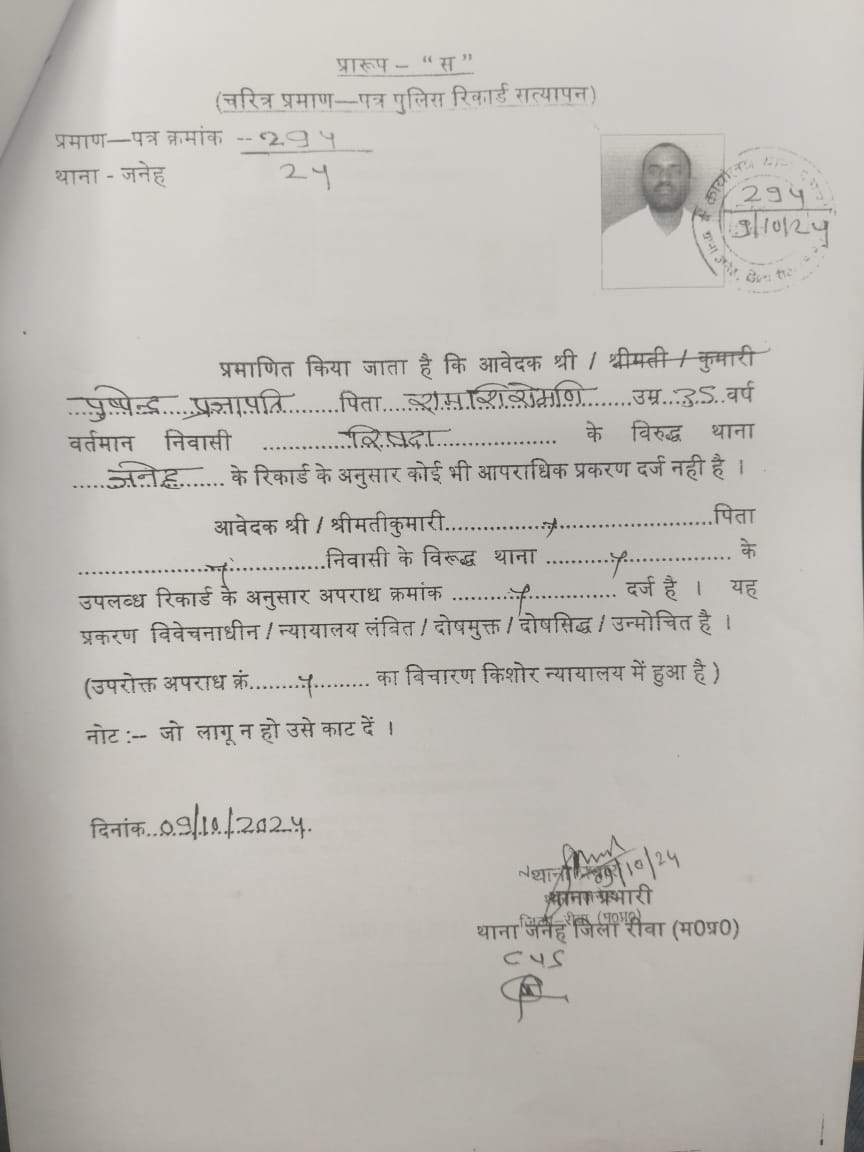 प्रारूप – “ स ”
(चरित्र प्रमाण—पत्र पुलिस रिकार्ड सत्यापन)
प्रमाण—पत्र क्रमांक -- 294
थाना - जनेह 24
294
9/10/24
प्रमाणित किया जाता है कि आवेदक श्री / श्रीमती / कुमारी
पुष्पेन्द्र प्रजापति पिता रामशिरोमणि उम्र 35 वर्ष
वर्तमान निवासी के विरुद्ध थाना
जनेह के रिकार्ड के अनुसार कोई भी आपराधिक प्रकरण दर्ज नही है ।
आवेदक श्री / श्रीमतीकुमारी..............................पिता
..............................निवासी के विरूद्ध थाना .................... के
उपलब्ध रिकार्ड के अनुसार अपराध क्रमांक .................... दर्ज है । यह
प्रकरण विवेचनाधीन / न्यायालय लंवित / दोषमुक्त / दोषसिद्ध / उन्मोचित है ।
(उपरोक्त अपराध क्रं............... का विचारण किशोर न्यायालय में हुआ है )
नोट :-- जो लागू न हो उसे काट दें ।
दिनांक..09/10/2024.
09/10/24
थाना प्रभारी
थाना जनेह जिला रीवा (म0प्र0)